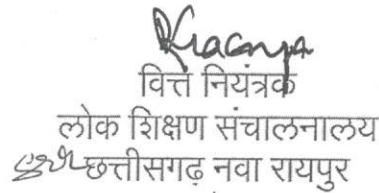 वित्त नियंत्रक
लोक शिक्षण संचालनालय
छत्तीसगढ़ नवा रायपुर